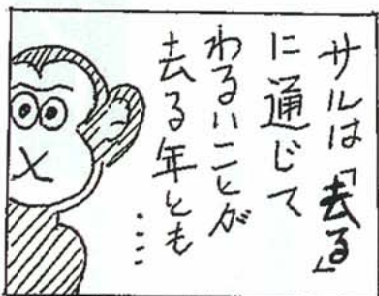 サルは「去る」
に通じて
わるいことが
去る年とも
‥‥